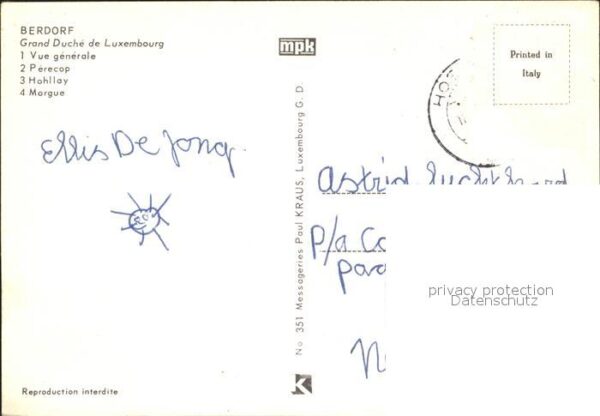 BERDORF
Grand Duché de Luxembourg
1 Vue générale
2 Pérecop
3 Hohllay
4 Margue
mpk
Printed in
Italy
Ellis De Jong.
No 351 Messageries Paul KRAUS, Luxembourg G. D.
Astrid
p/a
privacy protection
Datenschutz
K
Reproduction interdite